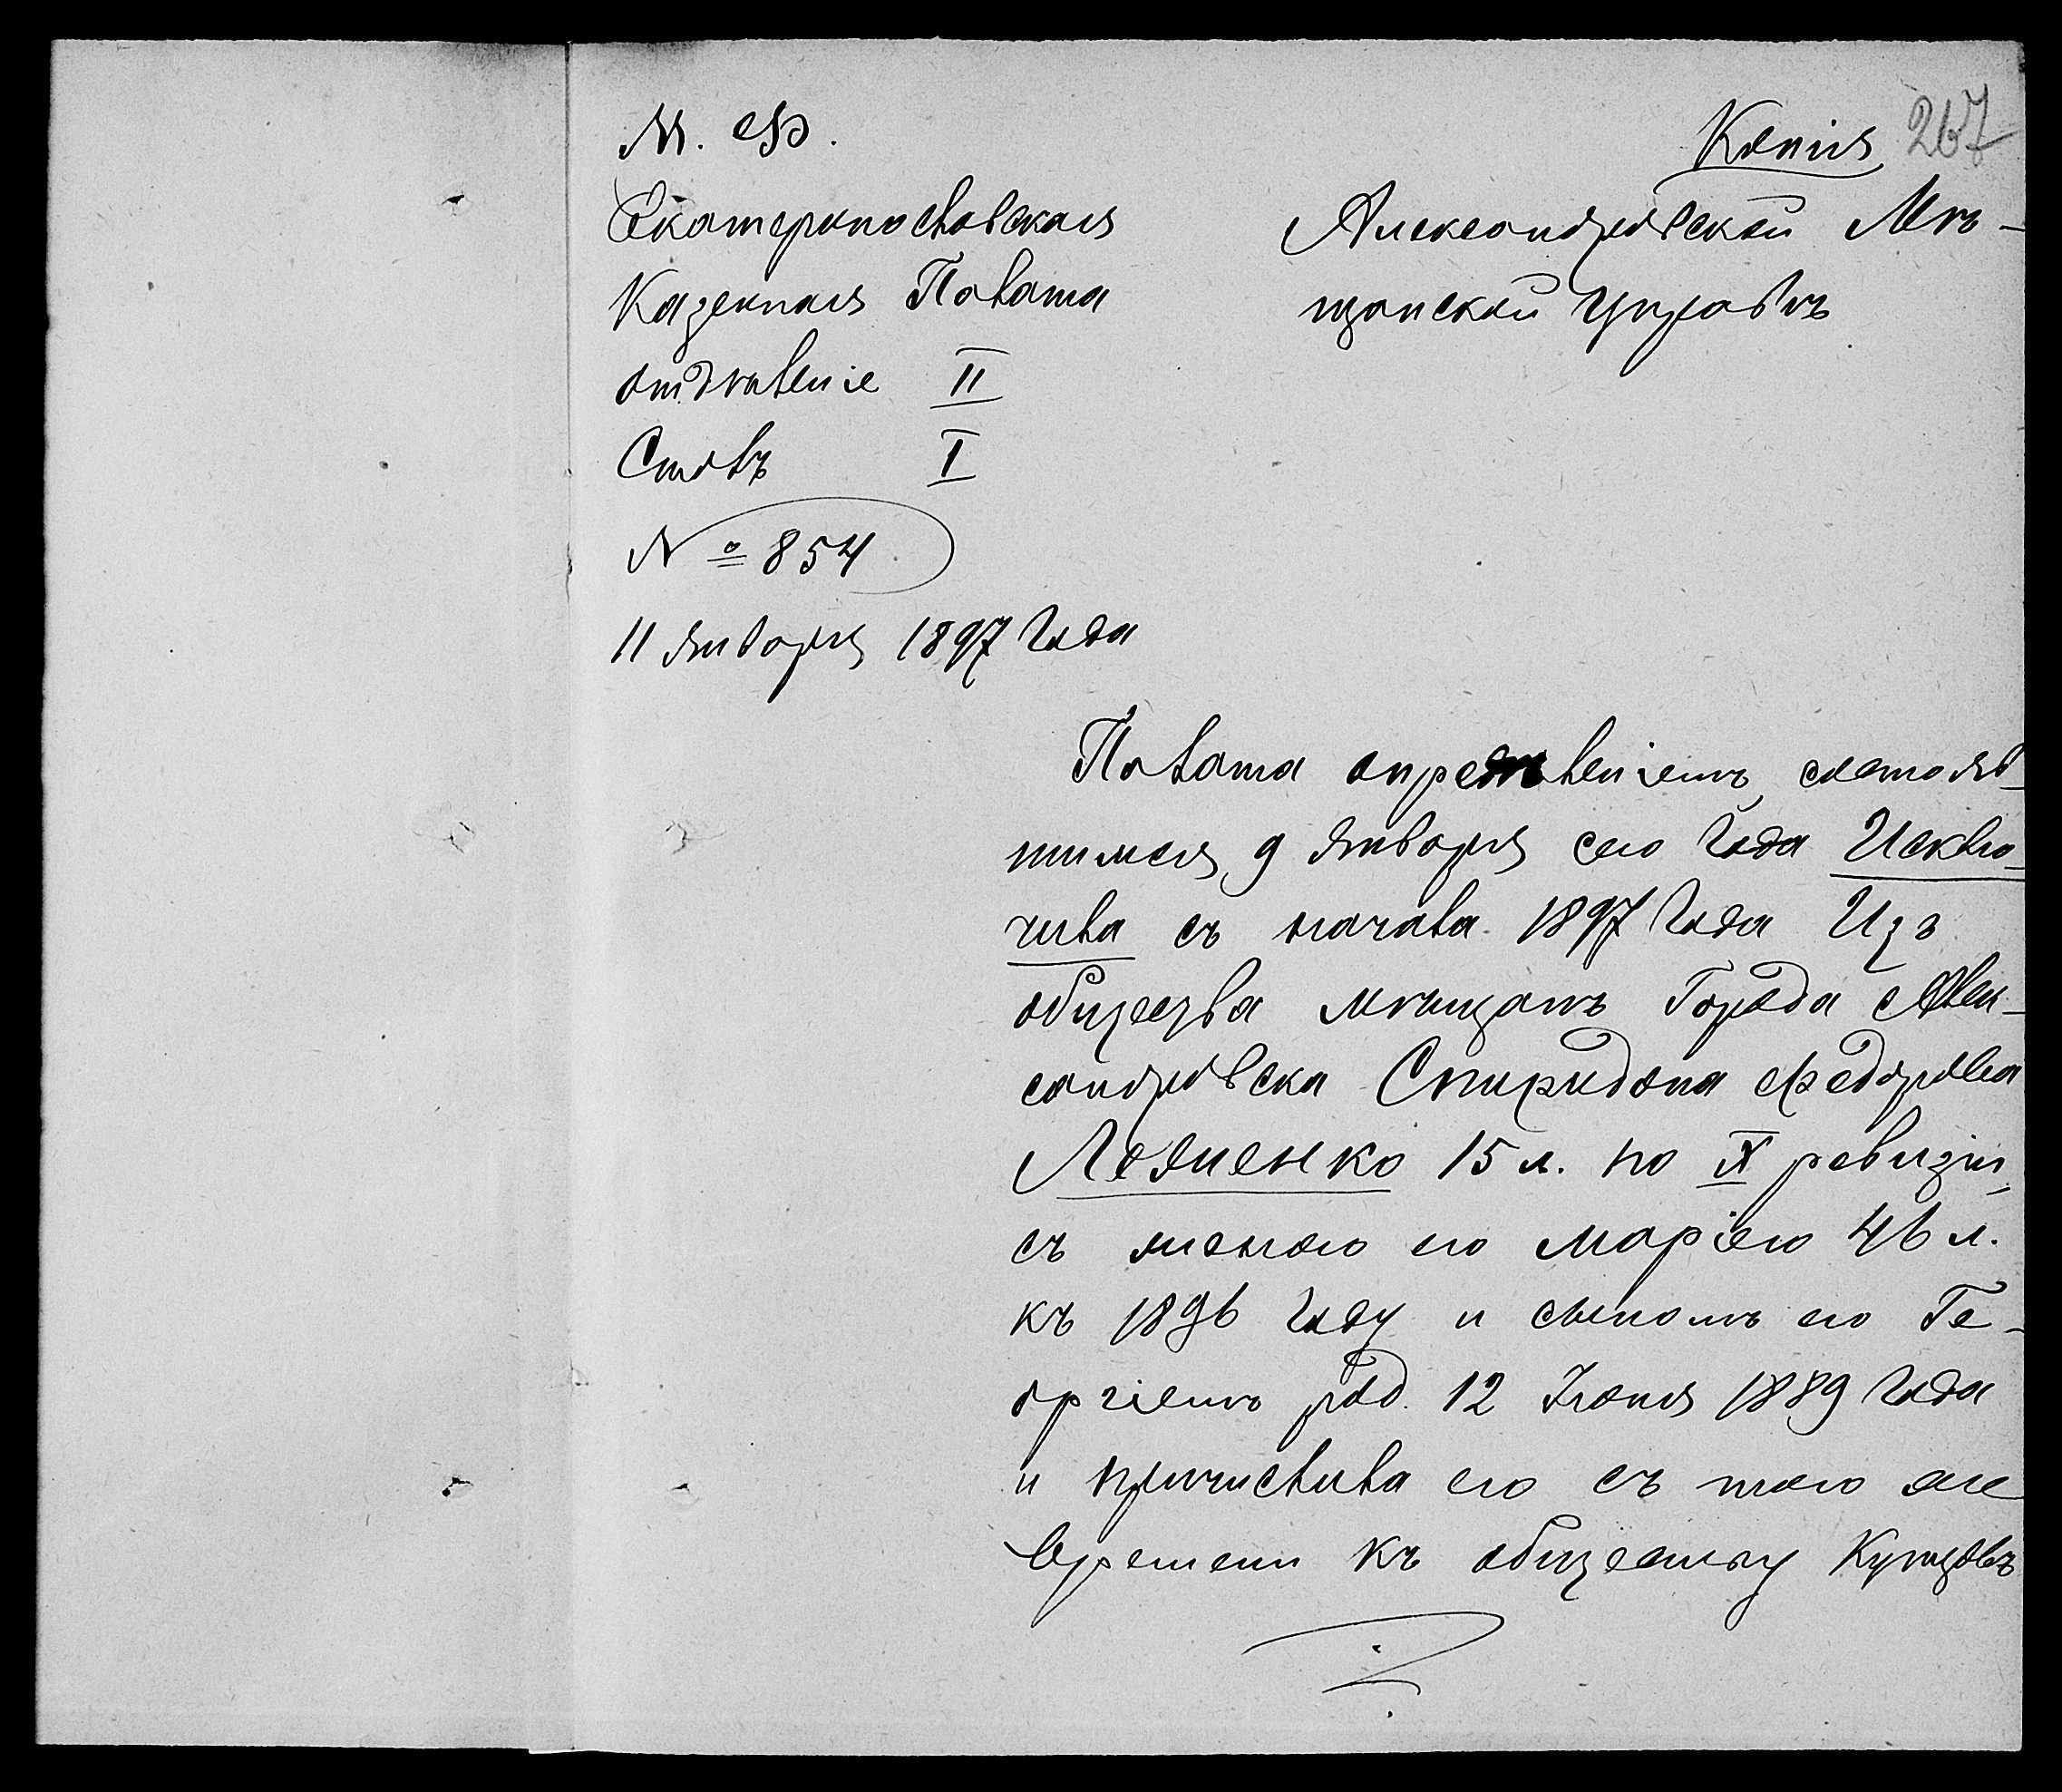 М. Ф.
Копія 267
Екатеринославская
Казенная Палата
отдѣленіе II
Столъ I
№ 854
11 Января 1897 Года
Александровской Мѣ-
щанской Управѣ
Палата опредѣленіемъ, состояв-
шимся 9 Января сего Года Исклю-
чила съ начала 1897 Года Изъ
общества мѣщанъ Города Алек-
сандровска Спиридона Федорова
15 л. по IX ревизіи,
съ женою его Маріею 46 л.
къ 1896 Году и сыномъ его Ге-
оргіемъ род. 12 Іюня 1889 Года
и причислила его съ того же
времени къ обществу Купцовъ